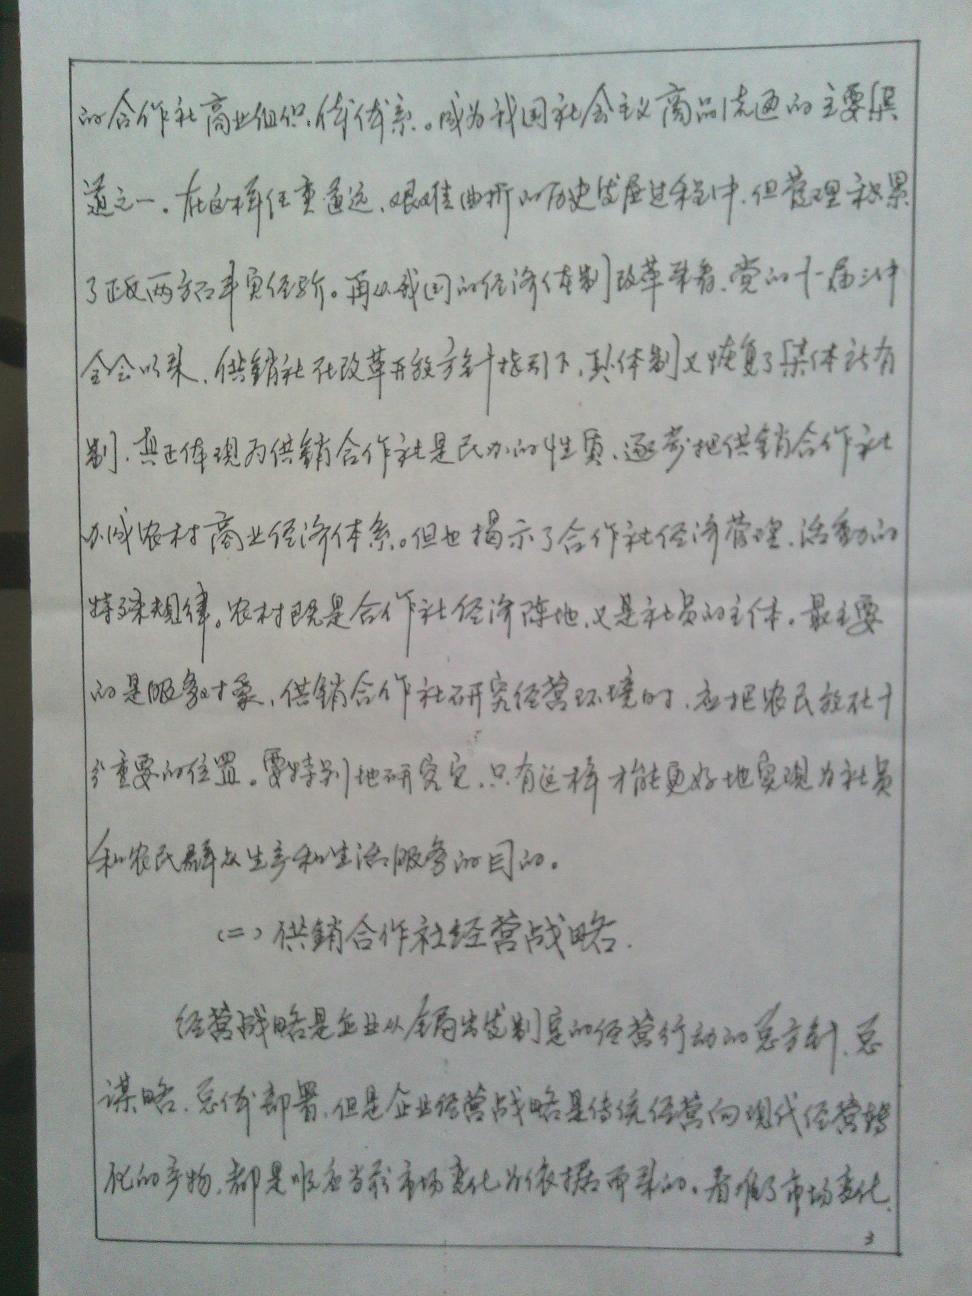 的合作社商业组织体系。成为我国社会主义商品流通的主要渠
道之一。在这样任重道远、艰难曲折的历史发展过程中,但管理积累
了正反两方面丰贵经验。再从我国的经济体制改革来看,党的十一届三中
全会以来,供销社在改革开放方针指引下,其体制又恢复了集体所有
制,真正体现为供销合作社是民办的性质,逐步把供销合作社
办成农村商业经济体系。但也揭示了合作社经济管理、活动的
特殊规律。农村既是合作社经济阵地,又是社员的主体。最主要
的是服务对象,供销合作社研究经营环境时,应把农民放在十
分重要的位置。要特别地研究它,只有这样才能更好地实现为社员
和农民群众生产和生活服务的目的。
(二)供销合作社经营战略.
经营战略是企业从全局出发制定的经营行动的总方针、总
谋略、总体部署,但是企业经营战略是传统经营向现代经营转
化的产物,都是顺应当前市场变化为依据而来的。看准了市场变化,
3